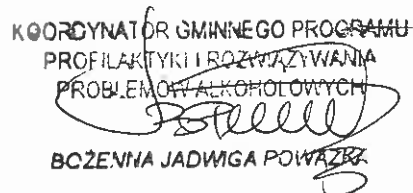 KOORDYNATOR GMINNEGO PROGRAMU
PROFILAKTYKI I ROZWIĄZYWANIA
PROBLEMÓW ALKOHOLOWYCH
BOŻENNA JADWIGA POWAZKA